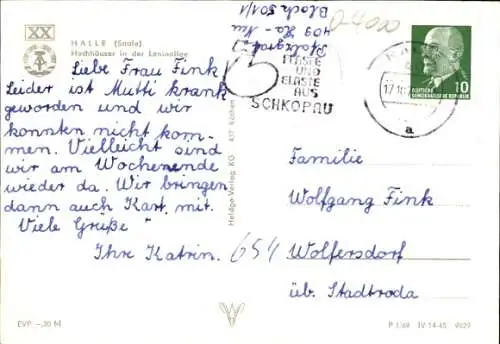 XX
HALLE (Saale)
Hochhäuser in der Leninallee
Liebe Frau Fink
Leider ist Mutti krank
geworden und wir
konnten nicht kom-
men. Vielleicht sind
wir am Wochenende
wieder da. Wir bringen
dann auch Kart. mit.
Viele Grüße
Ihre Katrin.
EVP -,20 M
409 Ha.-Neu
Block 501/1
PLASTE
UND
ELASTE
AUS
SCHKOPAU
DEUTSCHE
DEMOKRATISCHE REPUBLIK
10
a
Familie
Wolfgang Fink
654 Wolfersdorf
üb. Stadtroda
P 1/69 IV-14-45